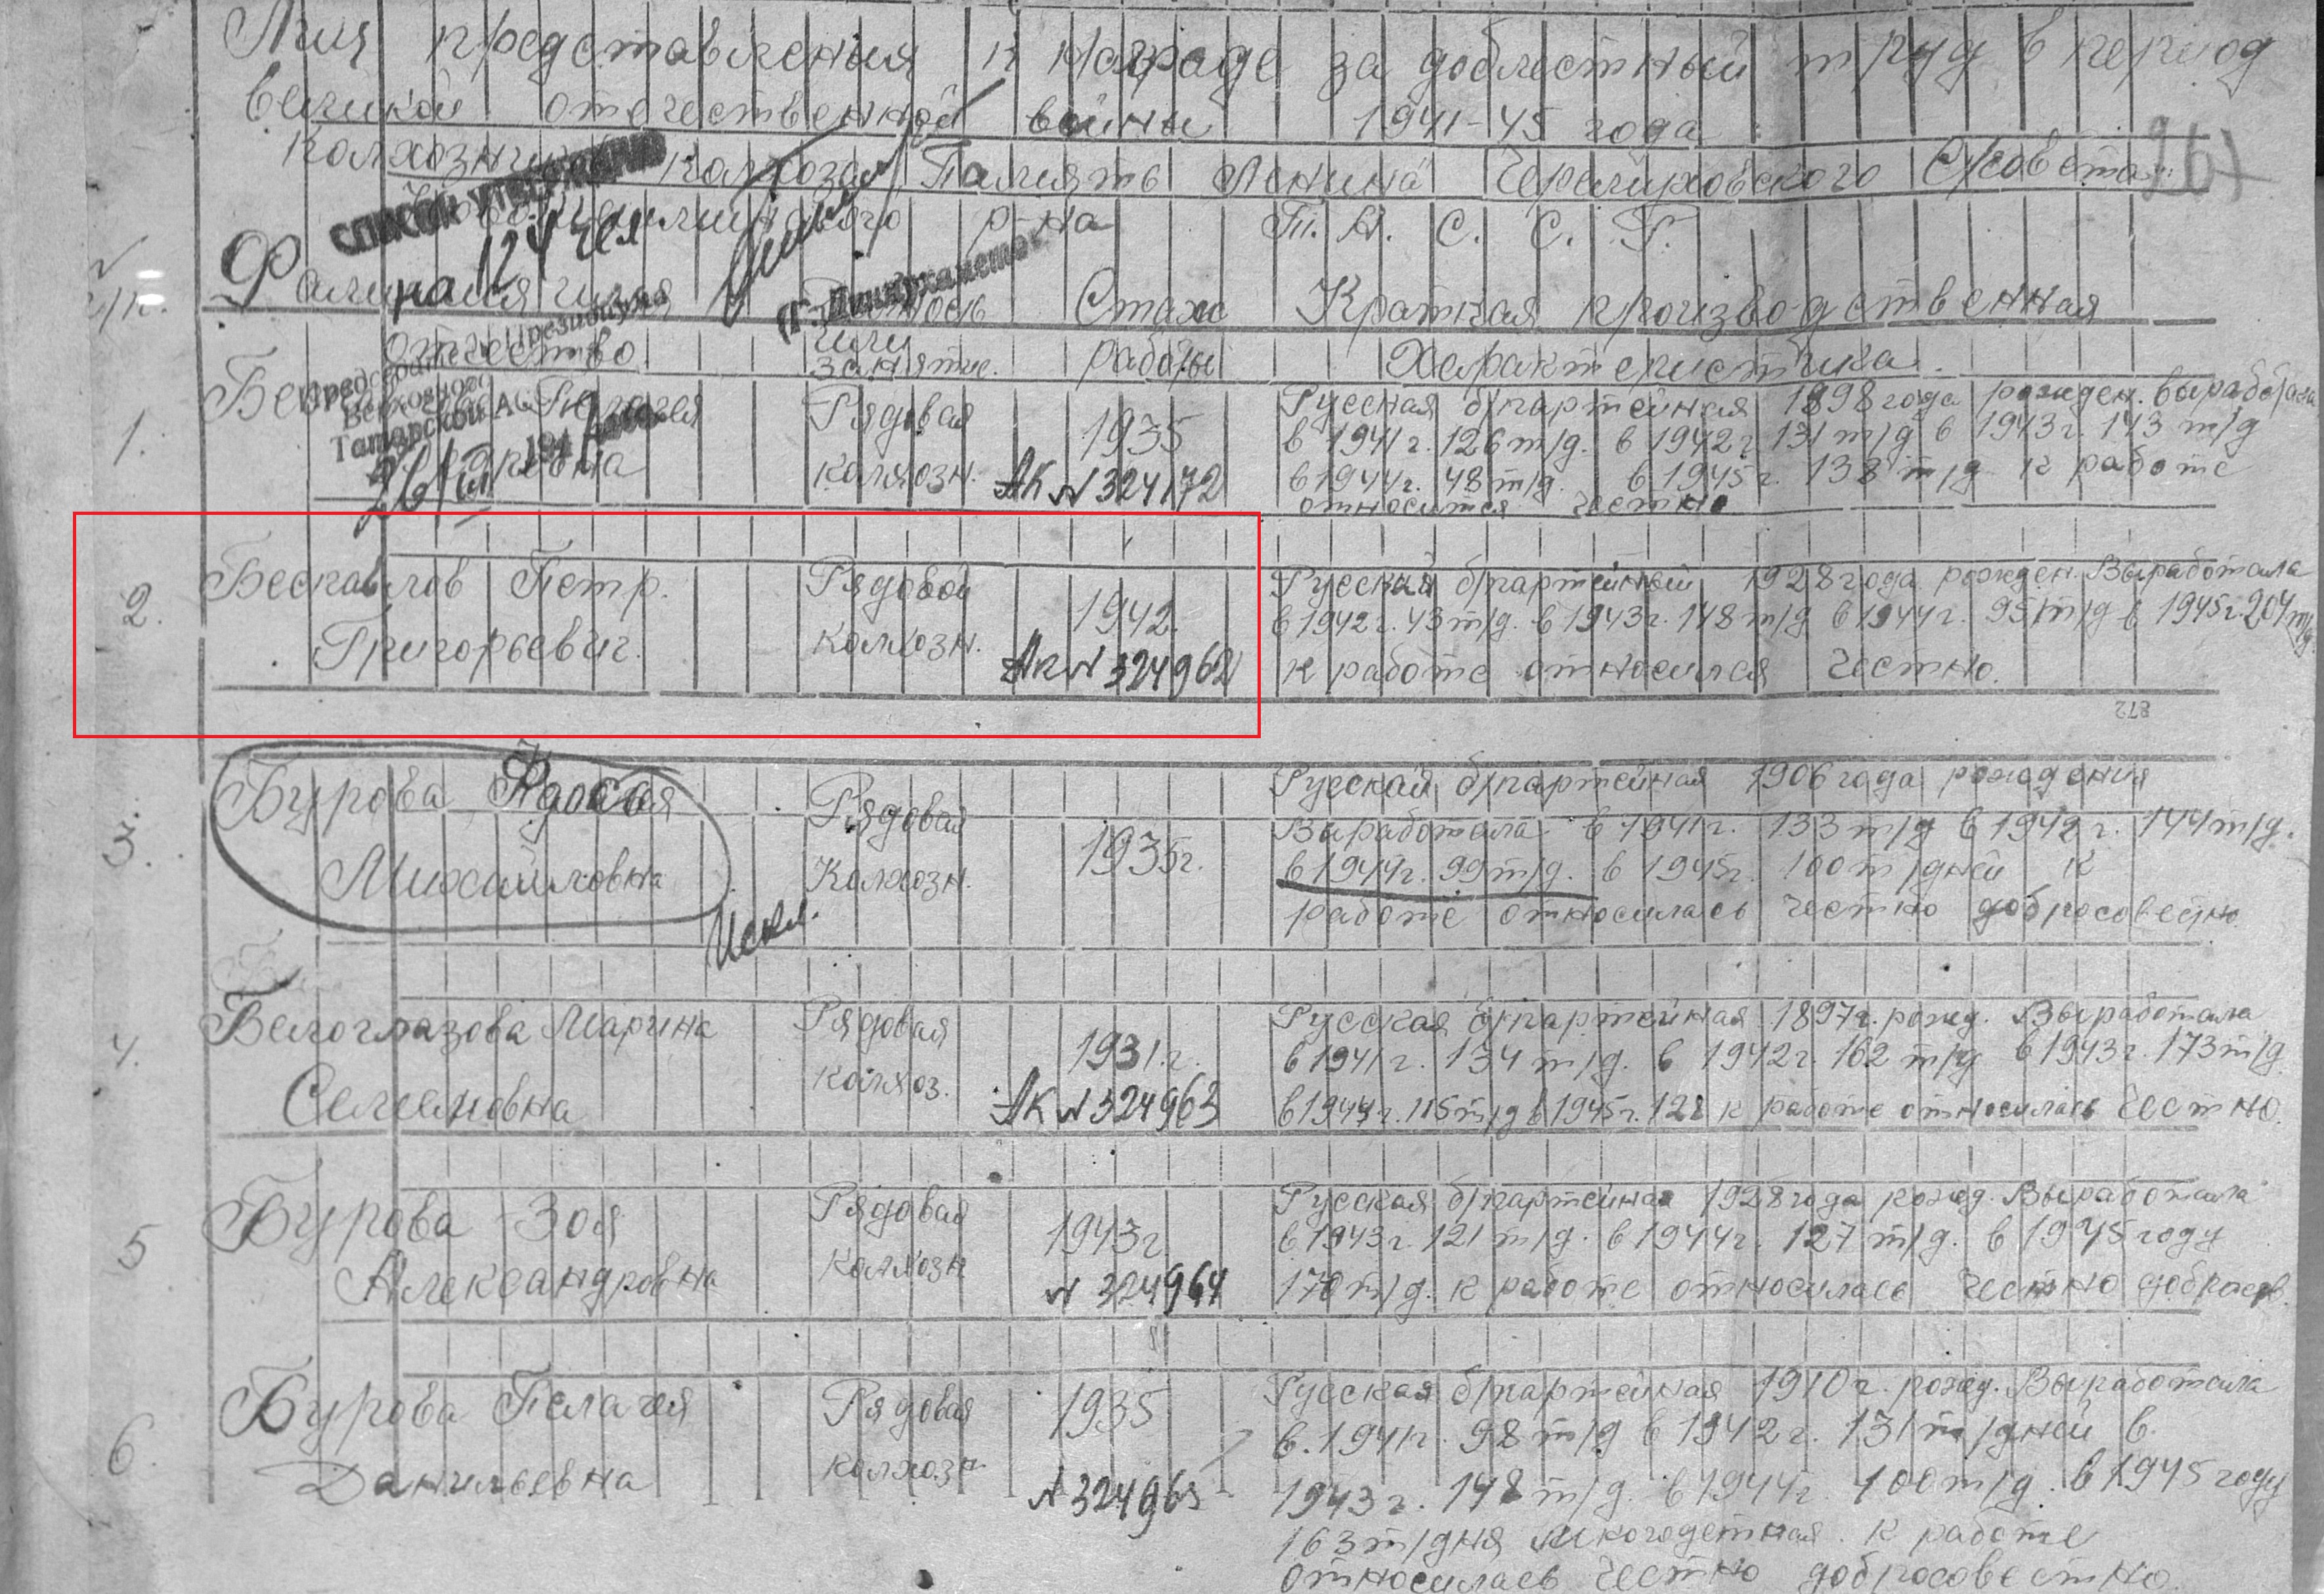 Для представления к награде за доблестный труд в период
Великой отечественной войны 1941-45 года
колхозников колхоза "Память Ленина" Черемуховского С/совета
р-на Т. А. С. С. Р.
267
СПИСОК УТВЕРЖДАЮ
на 124 чел
Председатель Президиума
Верховного
Татарской АССР
(Г. Динмухаметов)
26/VI 194
Фамилия имя отчество
или занятие.
Стаж работы
Краткая производственная характеристика.
1. Пелагея
Рядовая колхозн.
1935
АК N 324172
Русская б/партейная 1898 года рожден. выработала
в 1941 г. 126 т/д. в 1942 г 131 т/д в 1943 г. 143 т/д
в 1944 г. 48 т/д. в 1945 г. 138 т/д к работе
относится честно
2. Бескавлов Петр.
Григорьевич.
Рядовой колхозн.
1942.
АК N 324962
Русский б/партейный 1928 года рожден. Выработала
в 1942 г. 43 т/д. в 1943 г. 148 т/д в 1944 г. 95 т/д в 1945 г. 204 т/д
к работе относился честно.
872
3. Бурова
Михайловна
Рядовая Колхозн.
1935 г.
Искл.
Русская б/партейная 1906 года рождения
Выработала в 1941 г. 133 т/д в 1942 г. 144 т/д.
в 1944 г. 99 т/д. в 1945 г. 100 т/дней к
работе относилась честно добросовестно
4. Белоглазова Марина
Семеновна
Рядовая колхоз.
1931 г.
АК N 324963
Русская б/партейная 1897 г. рожд. Выработала
в 1941 г. 134 т/д. в 1942 г. 162 т/д в 1943 г. 173 т/д.
в 1944 г. 115 т/д в 1945 г. 128 к работе относилась честно.
5 Бурова Зоя
Александровна
Рядовая колхозн
1943 г.
N 324964
Русская б/партейная 1928 года рожд. Выработала
в 1943 г. 121 т/д. в 1944 г. 127 т/д. в 1945 году
170 т/д. к работе относилась честно добрасов.
6. Бурова Пелагея
Данильевна
Рядовая колхозн
1935
N 324965
Русская б/партейная 1910 г. рожд. Выработала
в 1941 г. 98 т/д в 1942 г. 131 т/дней в.
1943 г. 148 т/д. в 1944 г 100 т/д. в 1945 году
163 т/дня многодетная. к работе
относилась честно добросовестно